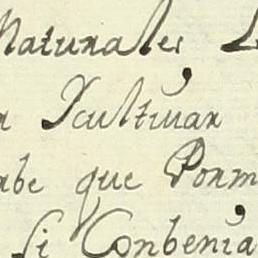 Naturales L
n Ycultivar
rbe que Ponm
si Conbenia